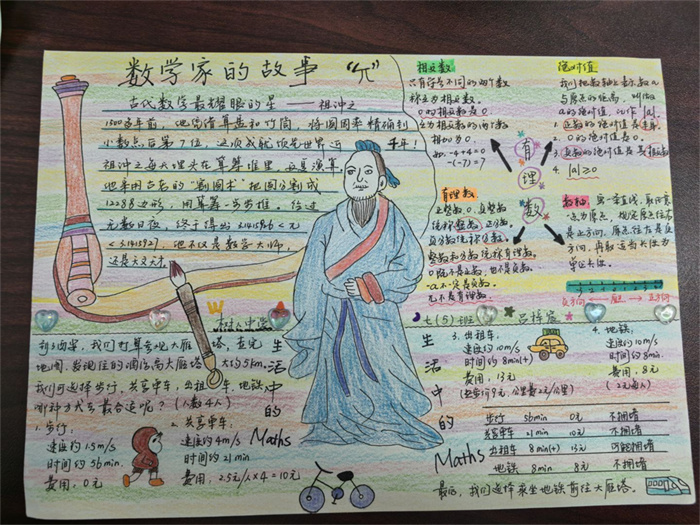 数学家的故事 “π”
古代数学最耀眼的星 —— 祖冲之
1500多年前，他凭借算盘和竹筒，将圆周率精确到
小数点后第7位，这项成就领先世界近千年！
祖冲之每天埋头在算筹堆里，反复演算
他采用古老的“割圆术”把圆分割成
12288边形，用算筹一步步推，经过
无数日夜，终于得出3.1415926<π
<3.1415927，他不仅是数学大师，
还是天文天才
相反数
只有符号不同的两个数
称互为相反数。
0的相反数是0
互为相反数的两个数
相加为0.
如：-4+4=0
-(-7)=7
绝对值
我们把数轴上表示数a
与原点的距离，叫做
a的绝对值，记作|a|.
1.正数的绝对值是其本身
2.0的绝对值是0
3.负数的绝对值是其相反数
4.|a|≥0
有
理
数
有理数
正整数，0，负整数
统称整数，正分数，
负分数统称分数。
整数和分数统称有理数。
0既不是正数，也不是负数
-a不一定是负数
π不是有理数
数轴：画一条直线，取任意
一点为原点，规定原点往右
是正方向，原点往左是负
方向，再取适当长度为
单位长度
负方向 ← 原点 → 正方向
W
生活中的
Maths
到了西安，我们打算参观大雁塔，查完
地图，发现住的酒店离大雁塔大约5km.
我们可选择步行，共享单车，出租车，地铁
哪种方式会最合适呢？（人数4人）
1.步行：
速度约1.5m/s
时间约56min.
费用：0元
2.共享单车：
速度约4m/s
时间约21min
费用：2.5元/人×4=10元
七(5)班 吕梓宸
生活中的
Maths
3.出租车：
速度约10m/s
时间约8min(+)
费用：13元
4.地铁：
速度约10m/s
时间约8min.
费用：8元
（2元每人）
步行 56min 0元 不拥堵
共享单车 21min 10元 不拥堵
出租车 8min(+) 13元 可能拥堵
地铁 8min 8元 不拥堵
最后，我们选择乘坐地铁前往大雁塔。